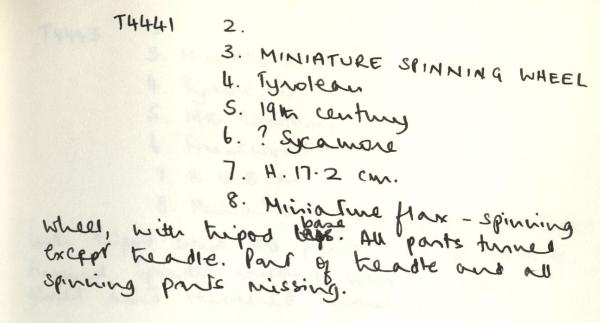 T4441 2.
3. MINIATURE SPINNING WHEEL
4. Tyrolean
5. 19th century
6. ? Sycamore
7. H. 17.2 cm.
8. Miniature flax - spinning
wheel, with tripod base. All parts turned
except treadle. Part of treadle and all
spinning parts missing.